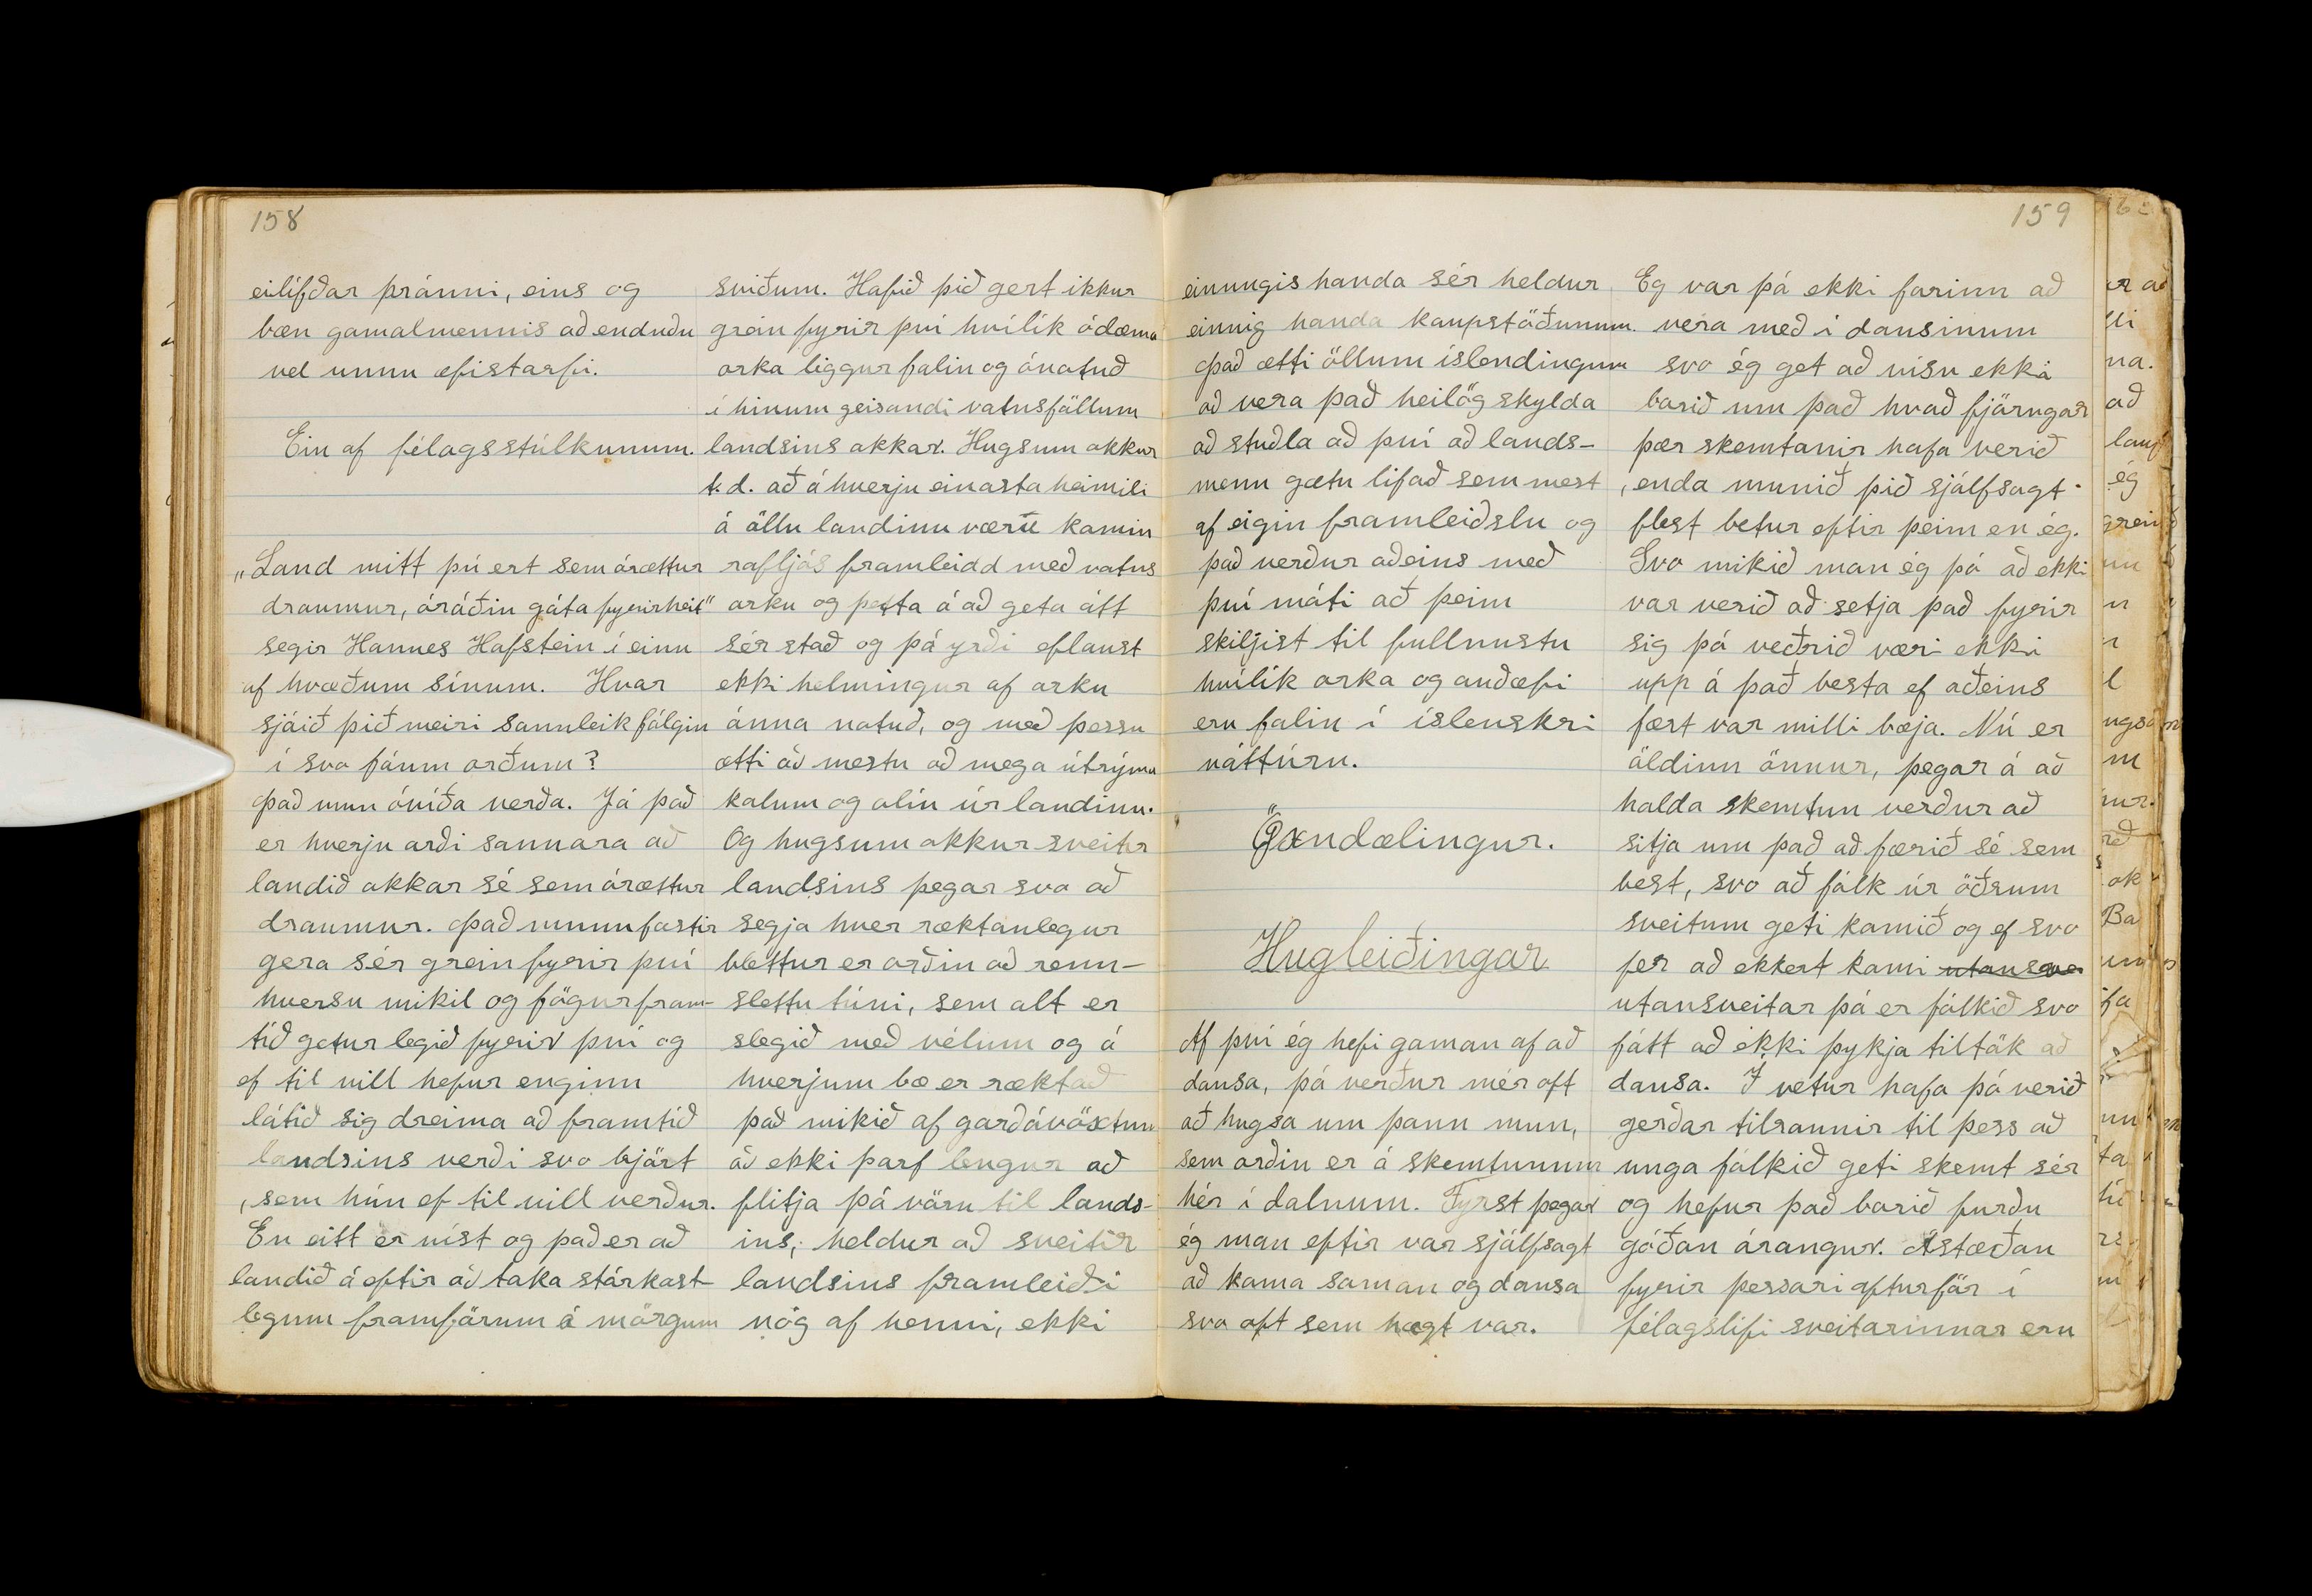 158
eilífðar þránni, eins og
bæn gamalmennis að enduðu
vel unnu æfistarfi.
Ein af félagsstúlkunum.
„Land mitt þú ert sem órættur
draumur, óráðin gáta fyrirheit"
segir Hannes Hafstein í einu
af kvæðum sínum. Hvar
sjáið þið meiri sannleik fólgin
í svo fáum orðum?
Það mun óvíða verða. Já það
er hverju orði sannara að
landið okkar sé sem órættur
draumur. Það munu fæstir
gera sér grein fyrir því
hversu mikil og fögur fram-
tíð getur legið fyrir því og
ef til vill hefur enginn
látið sig dreima að framtíð
landsins verði svo björt
, sem hún ef til vill verður.
En eitt er víst og það er að
landið á eftir að taka stórkost-
legum framförum á mörgum
sviðum. Hafið þið gert ikkur
grein fyrir því hvílík ódæma
orka liggur falin og ónotuð
í hinum geisandi vatnsföllum
landsins okkar. Hugsum okkur
t.d. að á hverju einasta heimili
á öllu landinu væru komin
rafljós framleidd með vatns
orku og þetta á að geta átt
sér stað og þá yrði eflaust
ekki helmingur af orku
ánna notuð, og með þessu
ætti að mestu að mega útrýma
kolum og olíu úr landinu.
Og hugsum okkur sveitir
landsins þegar svo að
segja hver ræktanlegur
blettur er orðin að renn-
sléttu túni, sem alt er
slegið með vélum og á
hverjum bæ er ræktað
það mikið af garðávöxtum
að ekki þarf lengur að
flitja þá vöru til lands-
ins, heldur að sveitir
landsins framleiði
nóg af henni, ekki
159
einungis handa sér heldur
einnig handa kaupstöðunum.
Það ætti öllum íslendingum
að vera það heilög skylda
að stuðla að því að lands-
menn gætu lifað sem mest
af eigin framleiðslu og
það verður aðeins með
því móti að þeim
skiljist til fullnustu
hvílík orka og auðæfi
eru falin í íslenskri
náttúru.
Öxndælingur.
Hugleiðingar
Af því ég hefi gaman af að
dansa, þá verður mér oft
að hugsa um þann mun,
sem orðin er á skemtunum
hér í dalnum. Fyrst þegar
ég man eftir var sjálfsagt
að koma saman og dansa
svo oft sem hægt var.
Eg var þá ekki farinn að
vera með í dansinum
svo ég get að vísu ekki
borið um það hvað fjörugar
þær skemtanir hafa verið
, enda munið þið sjálfsagt
flest betur eftir þeim en ég.
Svo mikið man ég þó að ekki
var verið að setja það fyrir
sig þó veðrið væri ekki
upp á það besta ef aðeins
fært var milli bæja. Nú er
öldinn önnur, þegar á að
halda skemtun verður að
sitja um það að færið sé sem
best, svo að fólk úr öðrum
sveitum geti komið og ef svo
fer að ekkert komi
utansveitar þá er fólkið svo
fátt að ekki þykja tiltök að
dansa. Í vetur hafa þó verið
gerðar tilraunir til þess að
unga fólkið geti skemt sér
og hefur það borið furðu
góðan árangur. Ástæðan
fyrir þessari afturför í
félagslífi sveitarinnar eru